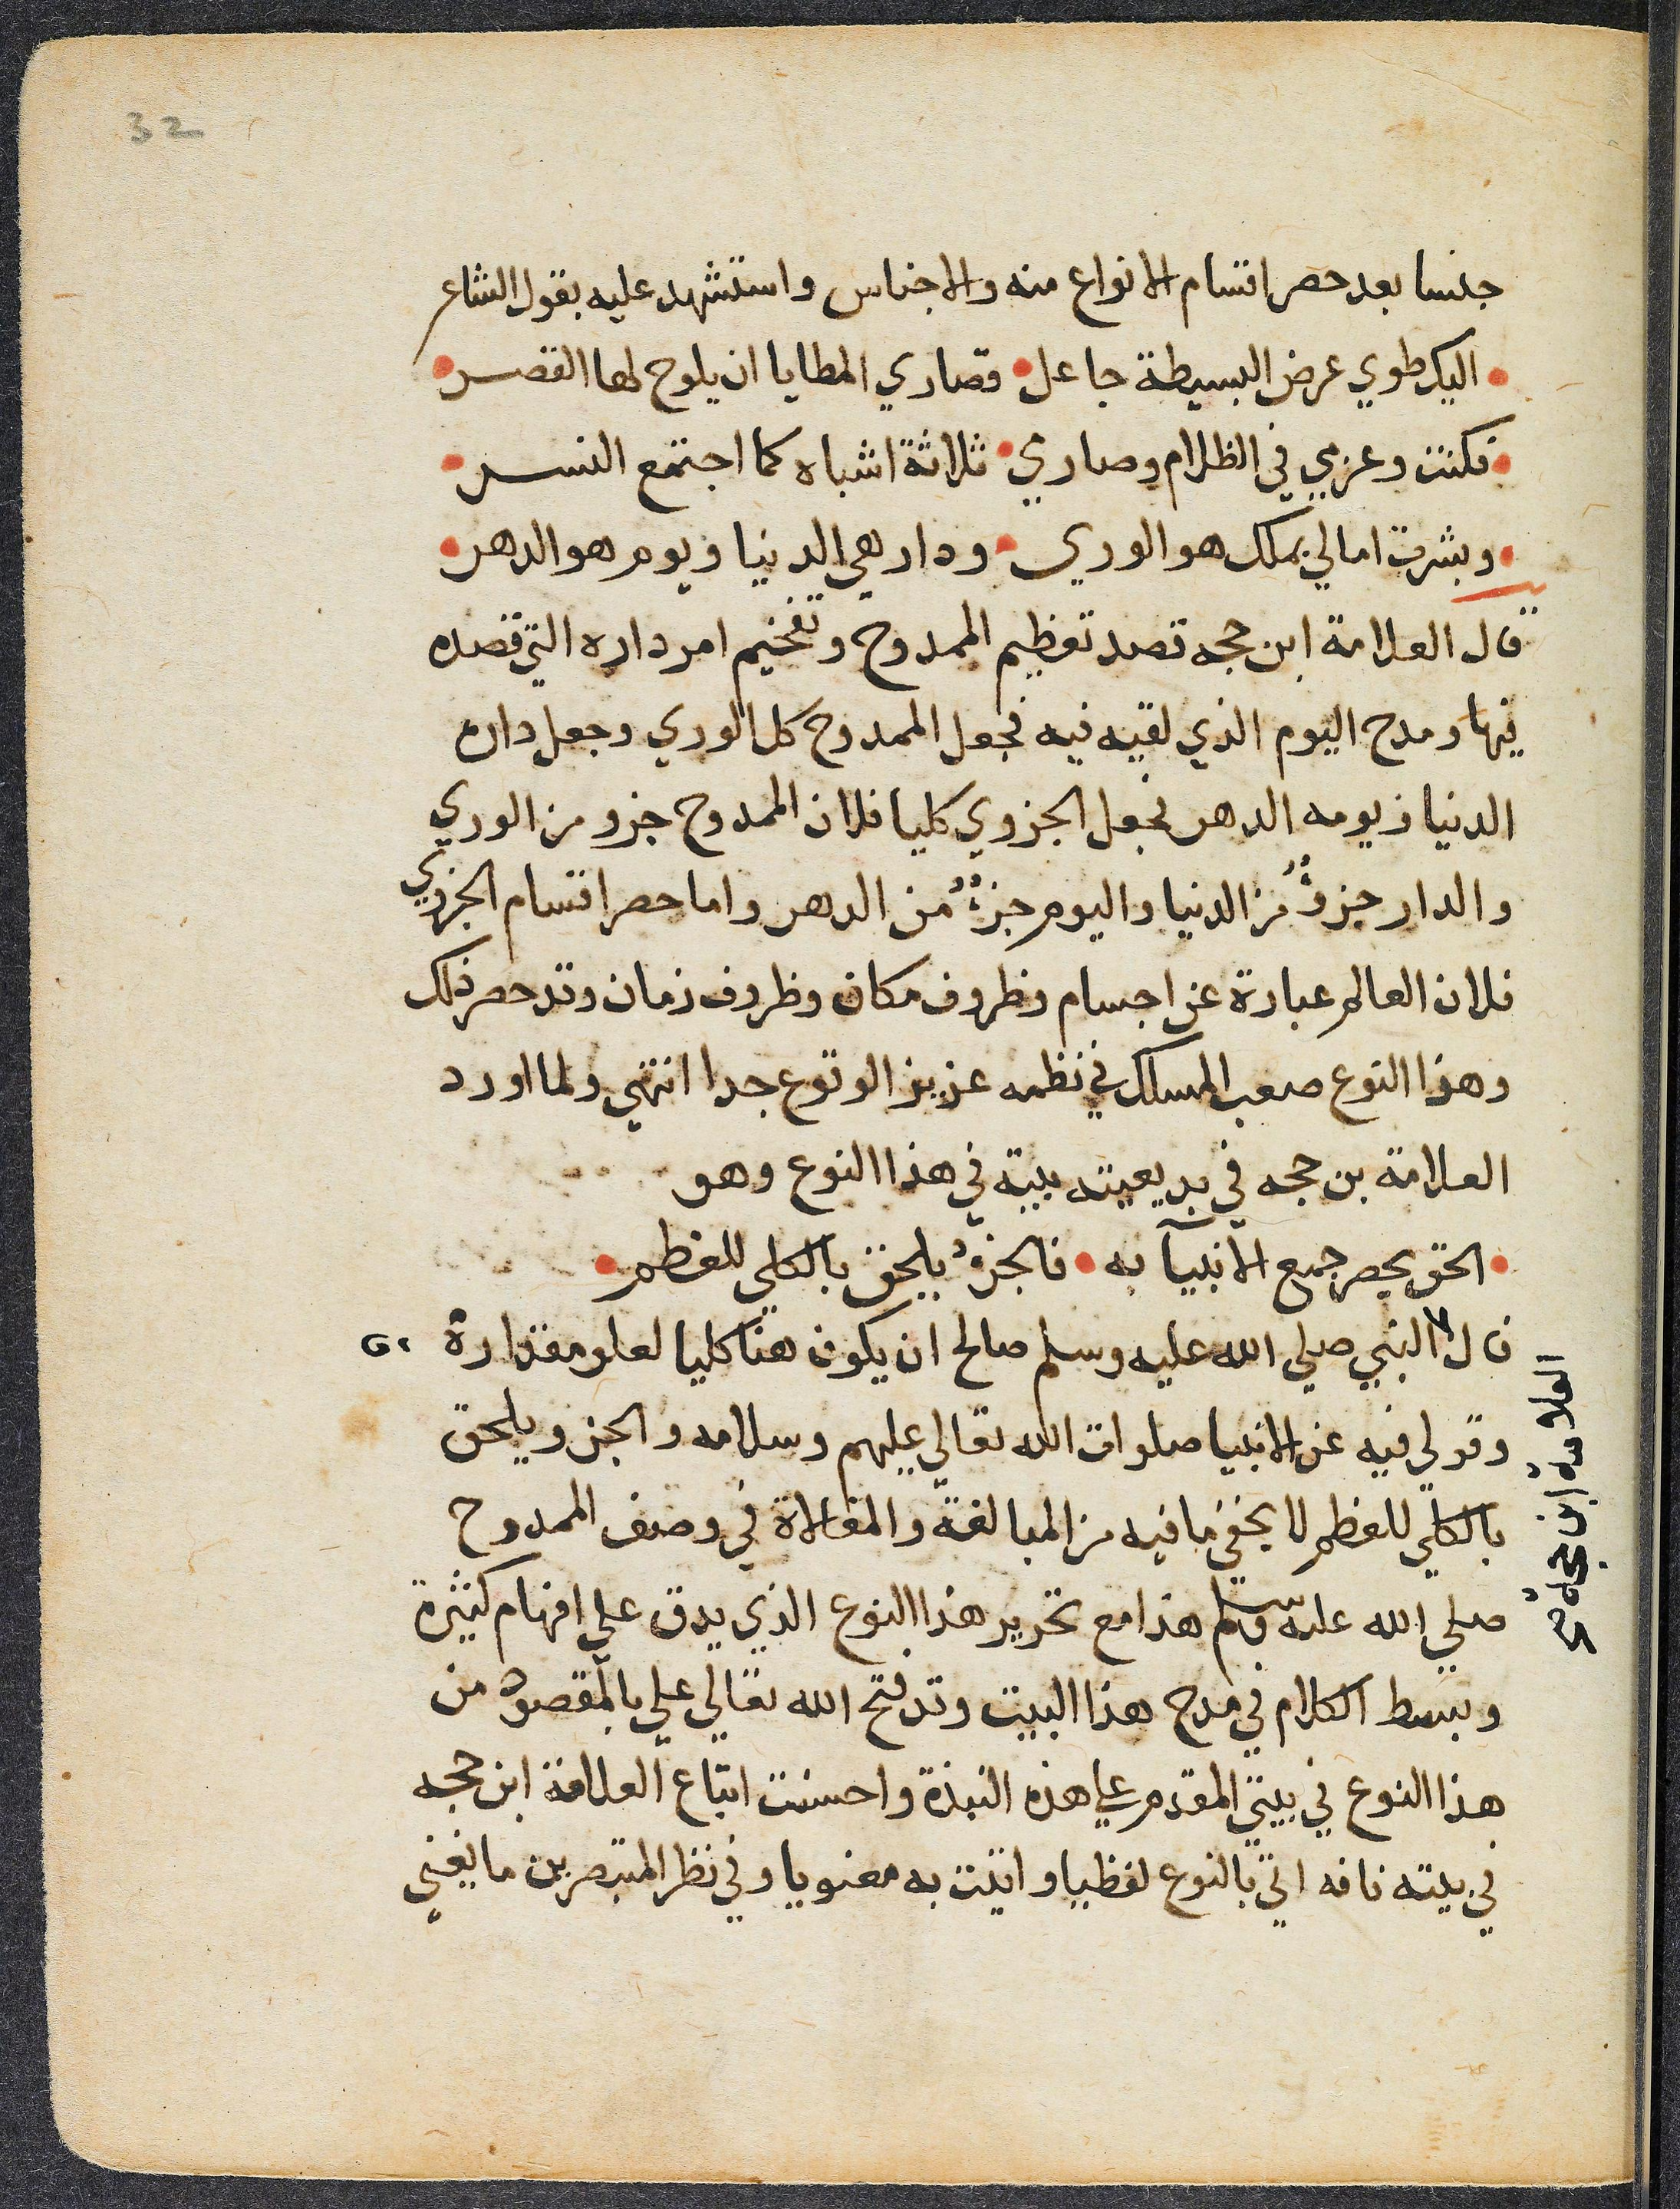 32
جنسا بعد حصر اقسام الانواع منه والاجناس واستشهد عليه بقول الشاعر
• اليك طوي عرض البسيطة جاعل • قصاري المطايا ان يلوح لها القصر •
• فكنت وعزمي في الظلام وصارمي • ثلاثة اشباه كما اجتمع النسر •
• وبشرت امالي بملك هو الوري • ودار هي الدنيا ويوم هو الدهر •
قال العلامة ابن حجه قصد تعظيم الممدوح وتفخيم امر داره التي قصده
فيها ومدح اليوم الذي لقيه فيه فجعل الممدوح كل الوري وجعل داره
الدنيا ويومه الدهر فجعل الجزوي كليا فلان الممدوح جزو من الوري
والدار جزؤ من الدنيا واليوم جزؤ من الدهر واما حصر اقسام الجزوي
فلان العالم عبارة عن اجسام وظروف مكان وظروف زمان وقد حصر ذلك
وهذا النوع صعب المسلك في نظمه عزيز الوقوع جدا انتهي ولما اورد
العلامة بن حجه في بديعيته بيته في هذا النوع وهو
• الحق بحصر جميع الانبيآ به • فالجزؤ يلحق بالكلي للعظم •
قال النبي صلي الله عليه وسلم صالح ان يكون هنا كليا لعلو مقداره
العلامة ابن حجه صح
وقولي فيه عن الانبيا صلوات الله تعالي عليهم وسلامه والجزو يلحق
بالكلي للعظم لا يخفي ما فيه من المبالغة والمغالاة في وصف الممدوح
صلي الله عليه وسلم هذا مع تحرير هذا النوع الذي يدق علي افهام كثيرة
وبسط الكلام في مدح هذا البيت وقد فتح الله تعالي علي بالمقصود من
هذا النوع في بيتي المقدم علي هذه النبذة واحسنت اتباع العلامة ابن حجه
في بيته فانه اتي بالنوع لفظيا واتيت به معنويا وفي نظر المتبصرين ما يغني